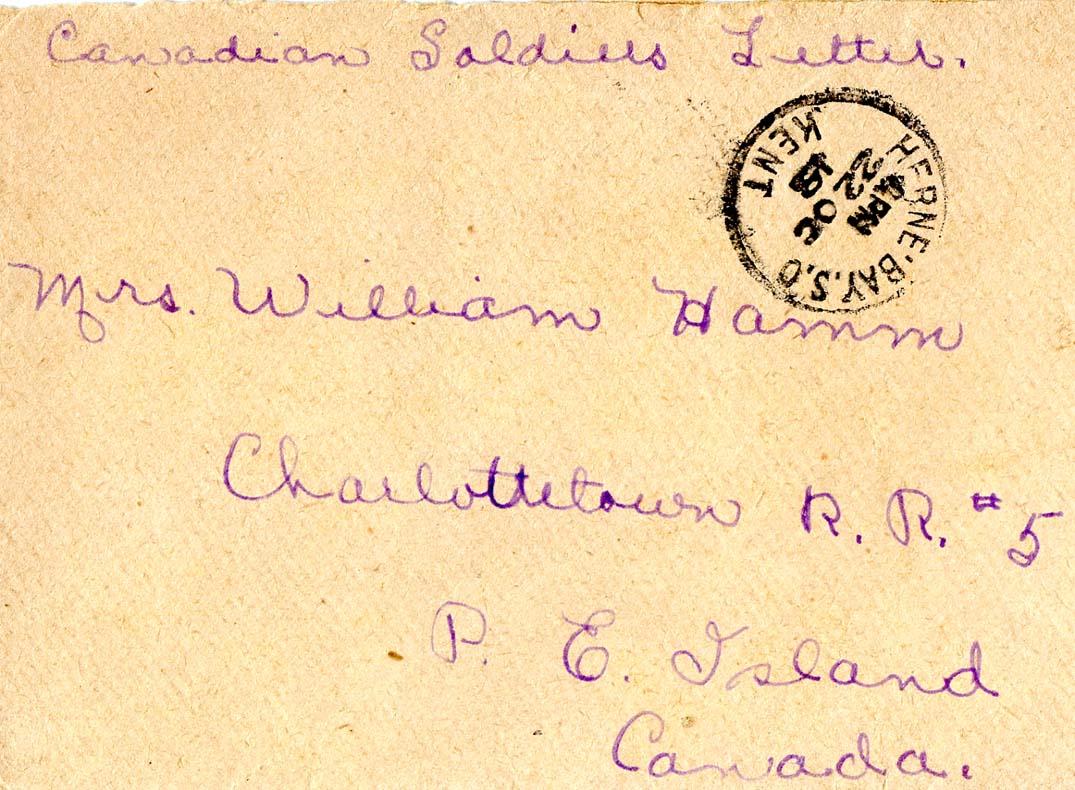 Canadian Soldiers Letter.
HERNE BAY. S.O
KENT
PM
22 OC
Mrs. William Hamm
Charlottetown R. R. # 5
P. E. Island
Canada.